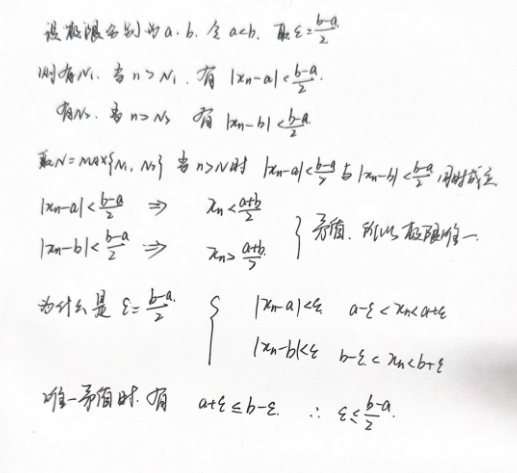 设极限分别为a.b. 令a<b. 取ε=\frac{b-a}{2}
则有N₁. 当n>N₁. 有 |xn-a|<\frac{b-a}{2}.
有N₂. 当n>N₂ 有 |xn-b|<\frac{b-a}{2}.
取N=max{N₁, N₂} 当n>N时 |xn-a|<\frac{b-a}{2}与|xn-b|<\frac{b-a}{2}同时成立
|xn-a|<\frac{b-a}{2} ⇒ xn<\frac{a+b}{2}
|xn-b|<\frac{b-a}{2} ⇒ xn>\frac{a+b}{2} } 矛盾. 所以极限唯一.
为什么是 ε=\frac{b-a}{2} { |xn-a|<ε. a-ε<xn<a+ε
|xn-b|<ε b-ε<xn<b+ε
唯一矛盾时. 有 a+ε≤b-ε. ∴ ε≤\frac{b-a}{2}.